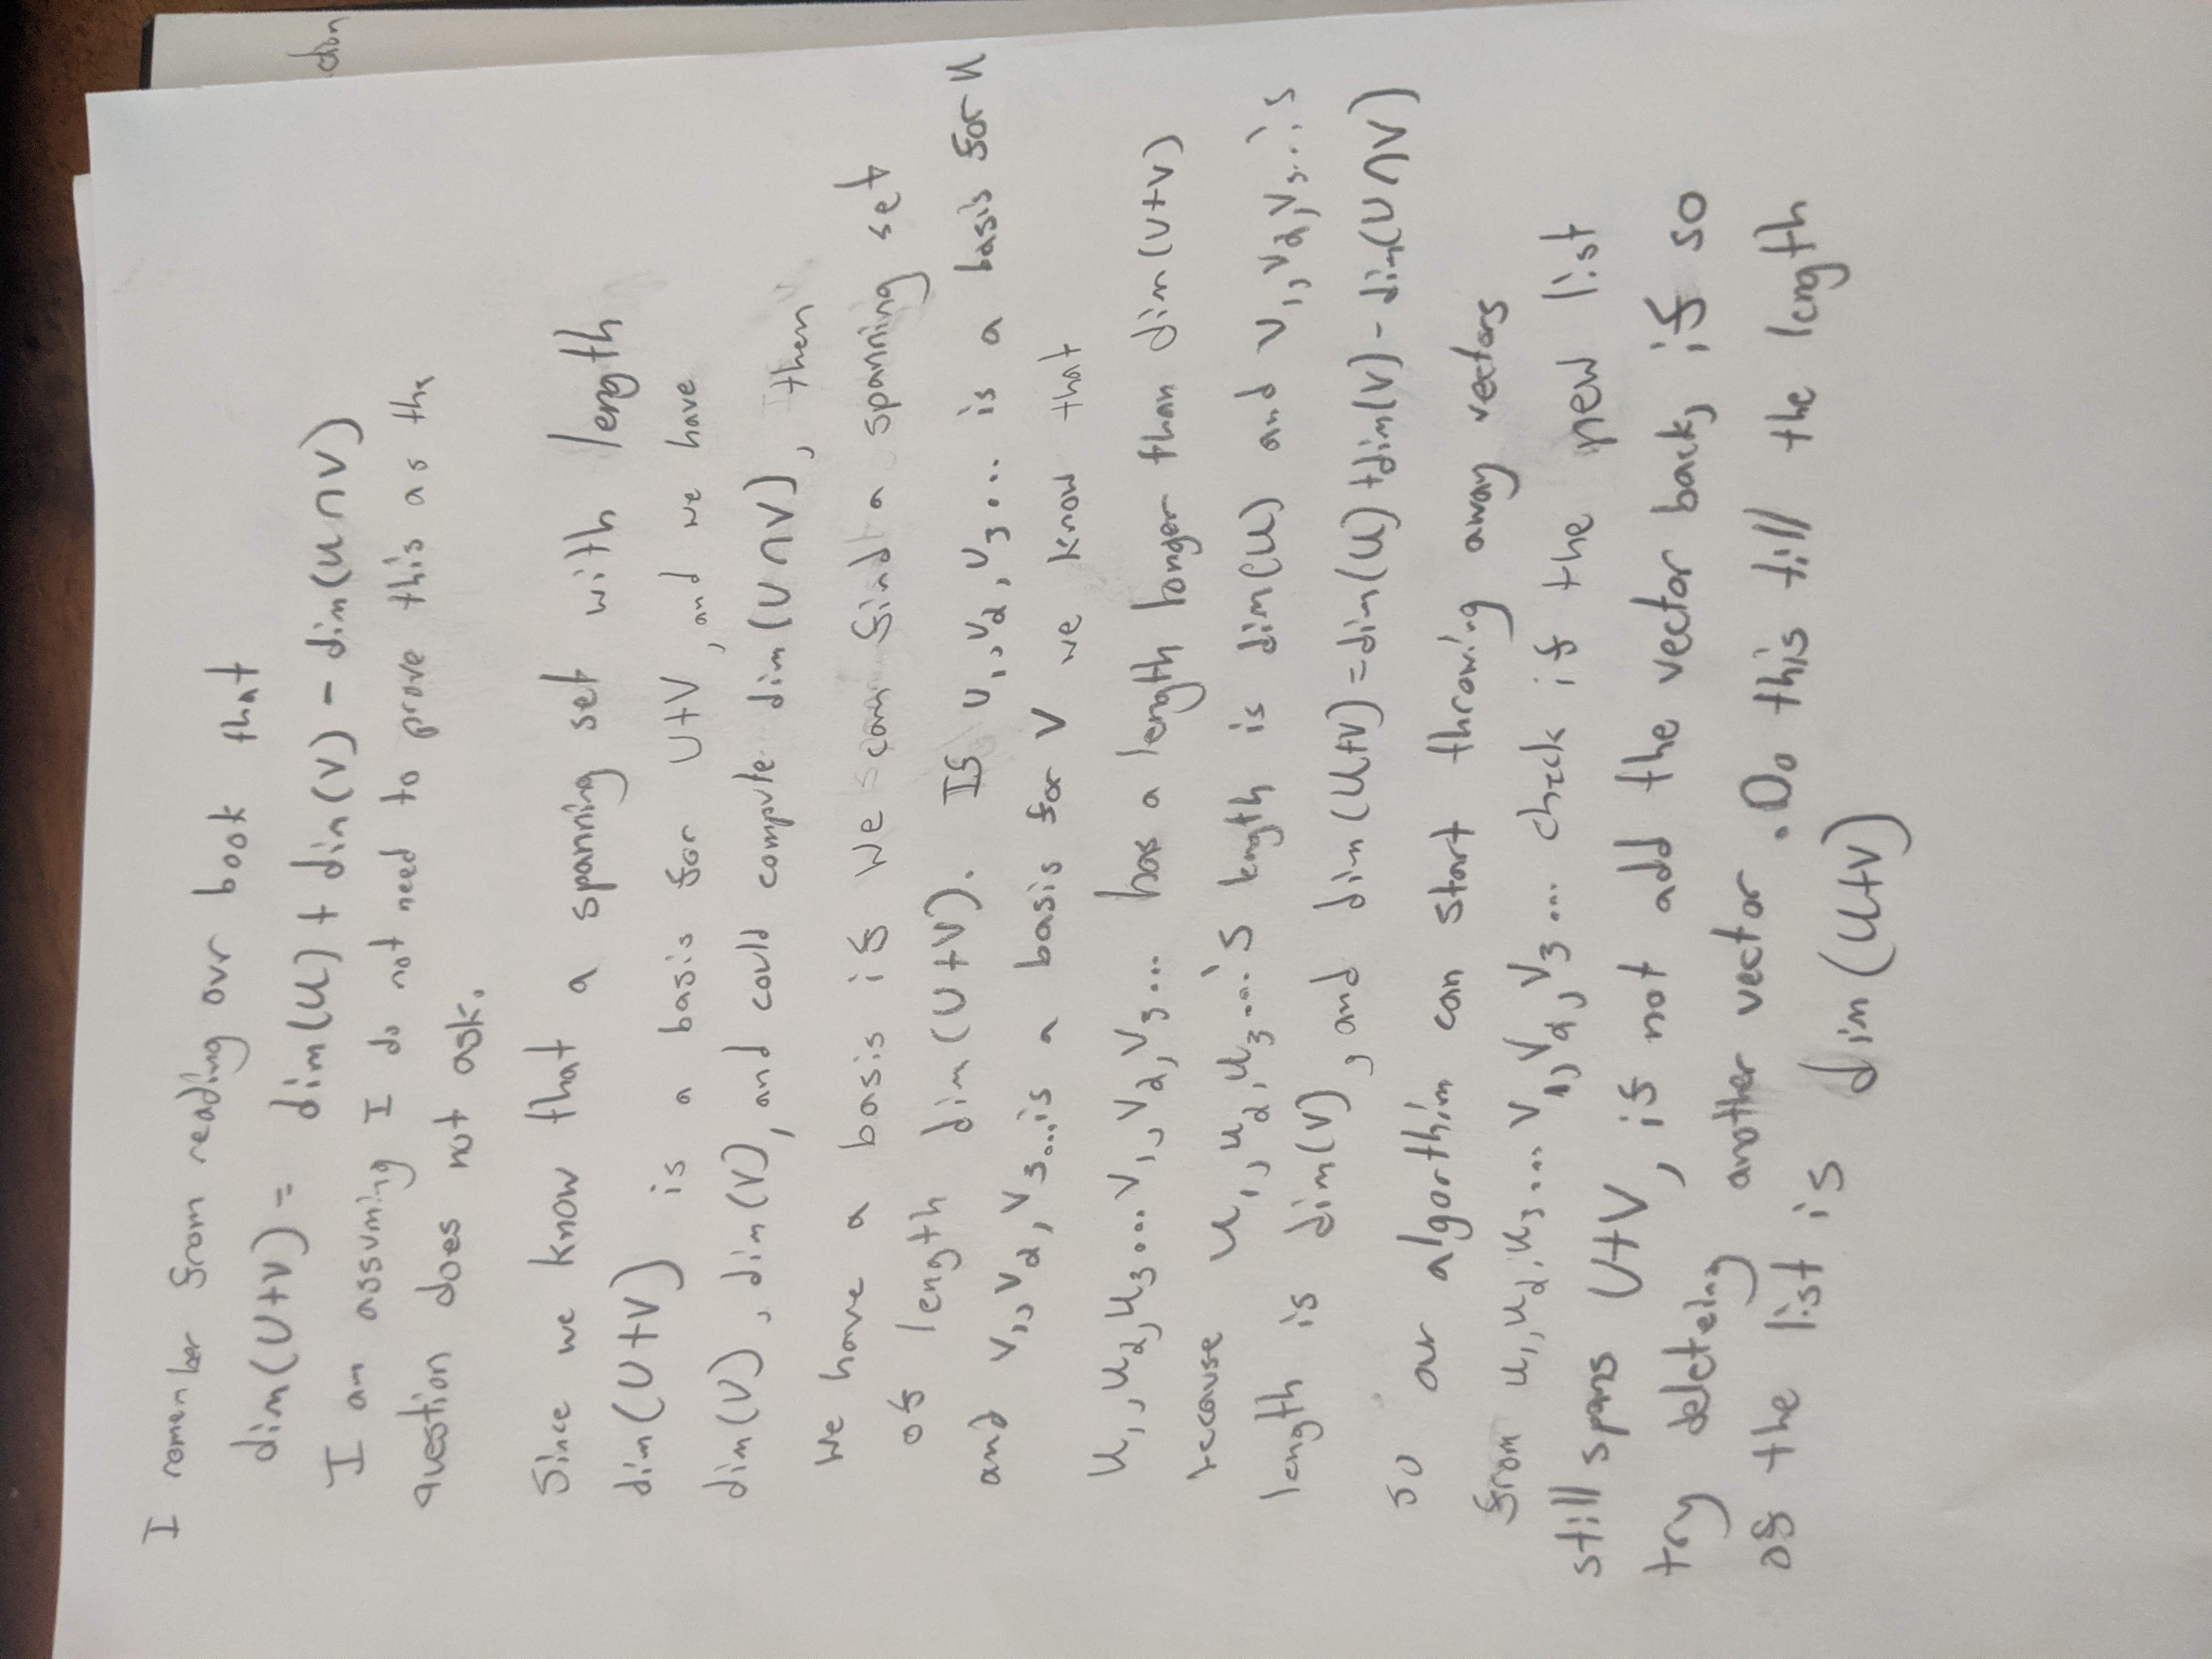 I remember from reading our book that
dim(U+V) = dim(U) + dim(V) - dim(U∩V)
I am assuming I do not need to prove this as the
question does not ask.
Since we know that a spanning set with length
dim(U+V) is a basis for U+V, and we have
dim(U), dim(V), and could compute dim(U∩V), then
we have a basis if we can find a spanning set
of length dim(U+V). If u₁, u₂, u₃... is a basis for U
and v₁, v₂, v₃... is a basis for V we know that
u₁, u₂, u₃... v₁, v₂, v₃... has a length longer than dim(U+V)
because u₁, u₂, u₃...'s length is dim(U) and v₁, v₂, v₃...'s
length is dim(V), and dim(U+V) = dim(U) + dim(V) - dim(U∩V)
so our algorthim can start throwing away vectors
from u₁, u₂, u₃... v₁, v₂, v₃... check if the new list
still spans U+V, if not add the vector back, if so
try deleteing another vector. Do this till the length
of the list is dim(U+V)